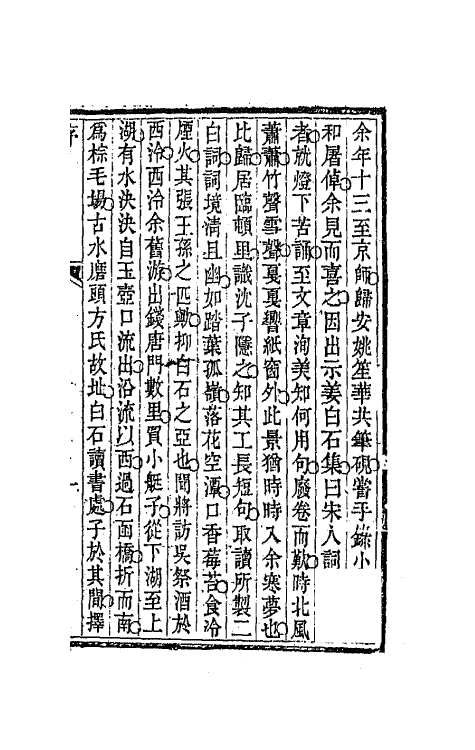 余年十三至京師歸安姚笙華共筆硯嘗手錄小
和屠倬余見而喜之因出示姜白石集曰宋人詞
者就燈下苦誦至文章洵美知何用句廢卷而歎時北風
蕭蕭竹聲雪聲戛戛響紙窗外此景猶時時入余寒夢也
比歸居臨頓里識沈子隱之知其工長短句取讀所製二
白詞詞境清且幽如踏葉孤嶺落花空潭口香莓苔食冷
煙火其張王孫之匹歟抑白石之亞也聞將訪吳祭酒於
西泠西泠余舊游出錢唐門數里買小艇子從下湖至上
湖有水泱泱自玉壺口流出沿流以西過石函橋折而南
爲棕毛場古水磨頭方氏故址白石讀書處子於其間擇
序
一